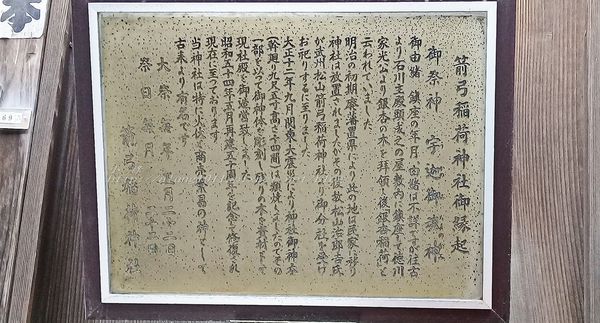 箭弓稲荷神社御縁起
御祭神 宇迦御魂神
御由緒 鎮座の年月、由緒は不詳ですが往古
より石川主殿頭成之の屋敷内に鎮座して徳川
家光公より銀杏の木を拝領し後銀杏稲荷と
云われていました。
明治の初期廃藩置県により此の地は民家に移り
神社は放置されましたがその後故松山治郎吉氏
が武州松山箭弓稲荷神社より御分社を受け
お祀りするに至りました。
大正十二年九月関東大震災により神社御神木
(幹廻り九尺五寸高さ十四間)は類焼しましたのでその
一部を以って御神体を彫刻し残りの木を資材として
現社殿を御造営致しました。
昭和五十四年五月再建五十周年を記念して修復され
現在に至っております
当神社は特に火伏と商売繁昌の神として
古来より有名です
大祭 毎年
祭日 毎月
箭弓稲荷神社